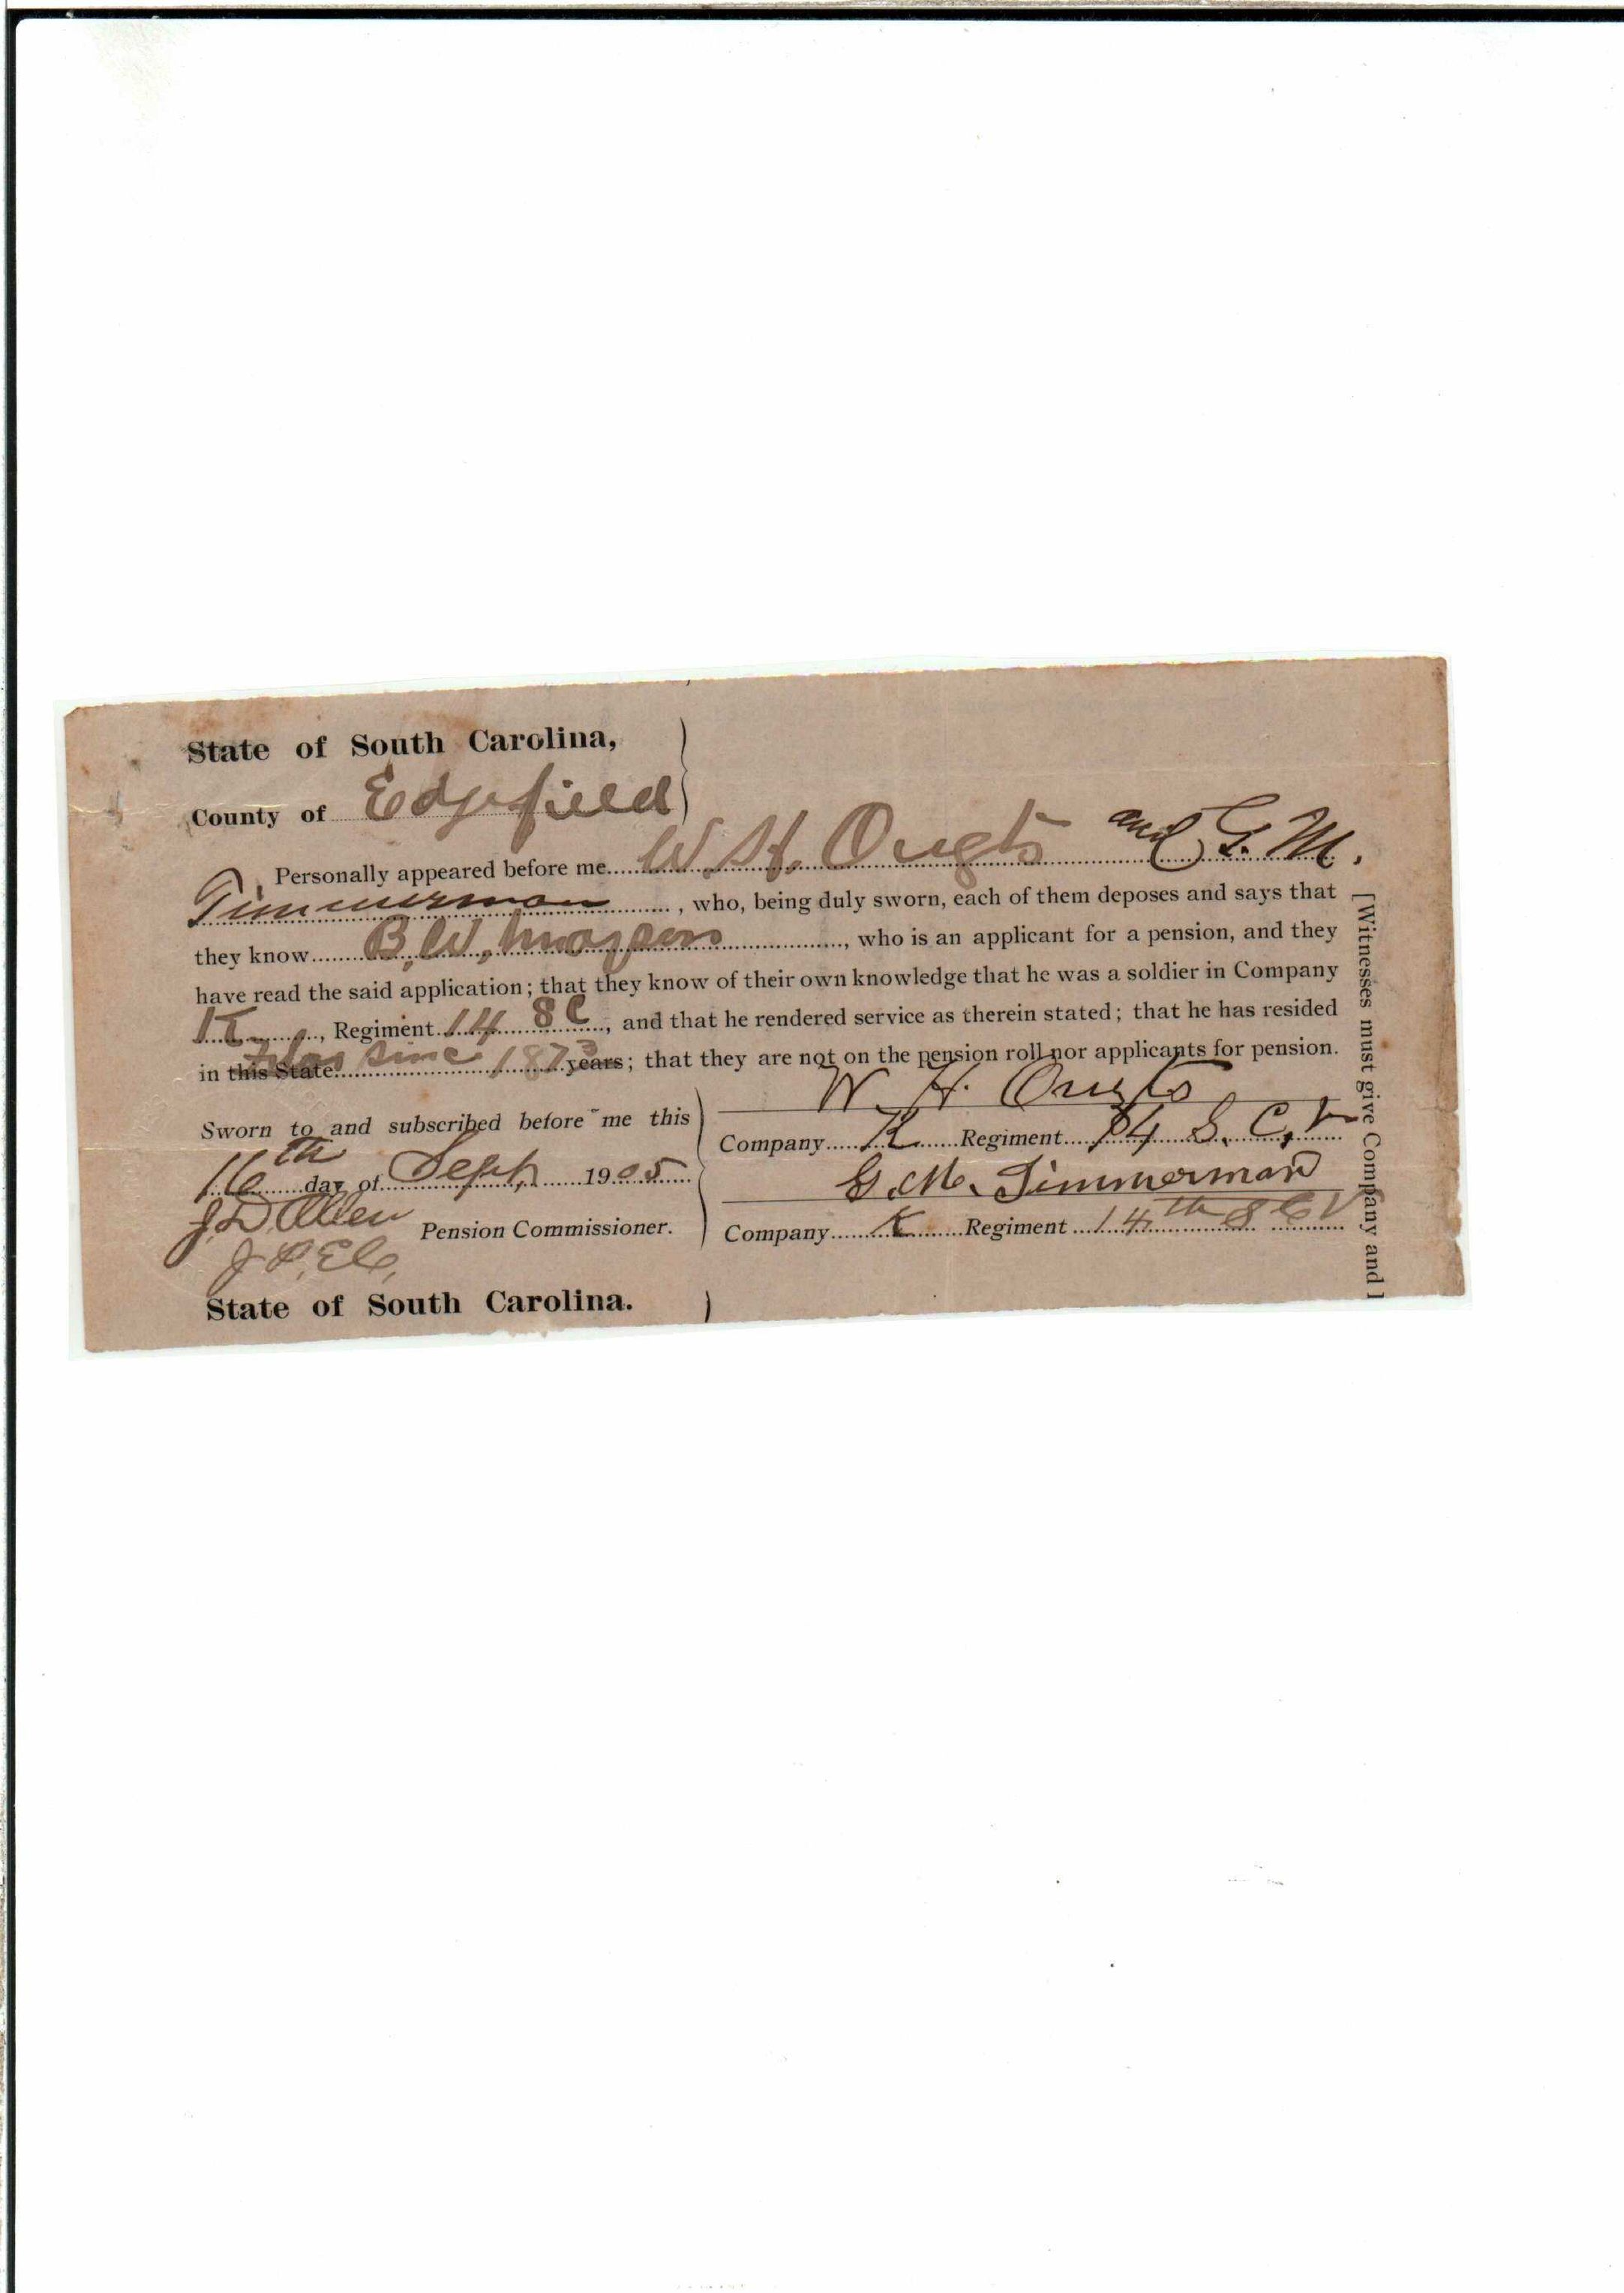 State of South Carolina,
County of Edgefield
Personally appeared before me W. H. Ouzts and G. M.
Timmerman, who, being duly sworn, each of them deposes and says that
they know B. W., who is an applicant for a pension, and they
have read the said application; that they know of their own knowledge that he was a soldier in Company
K, Regiment 14 S C, and that he rendered service as therein stated; that he has resided
in this State since 1873 years; that they are not on the pension roll nor applicants for pension.
Sworn to and subscribed before me this
16th day of Sept, 1905
J D Allen Pension Commissioner.
W. H. Ouzts
Company K Regiment 14 S. C. V
G. M. Timmerman
Company K Regiment 14th S C V
[Witnesses must give Company and
State of South Carolina.